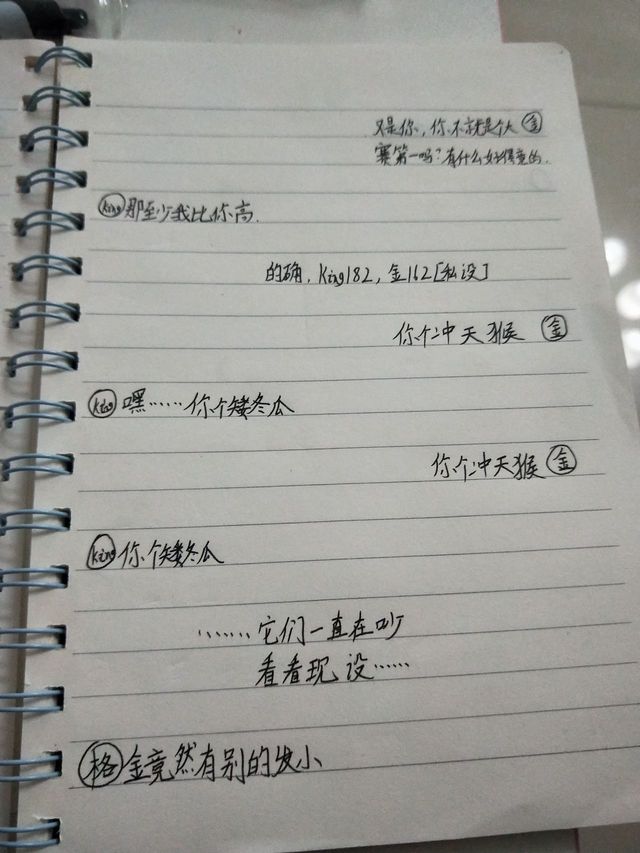 又是你，你不就是个大 金
赛第一吗？有什么好得意的．
King 那至少我比你高．
的确．King182，金162[私设]
你个冲天猴 金
King 嘿……你个矮冬瓜
你个冲天猴 金
King 你个矮冬瓜
……它们一直在吵
看看现设……
格 金竟然有别的发小